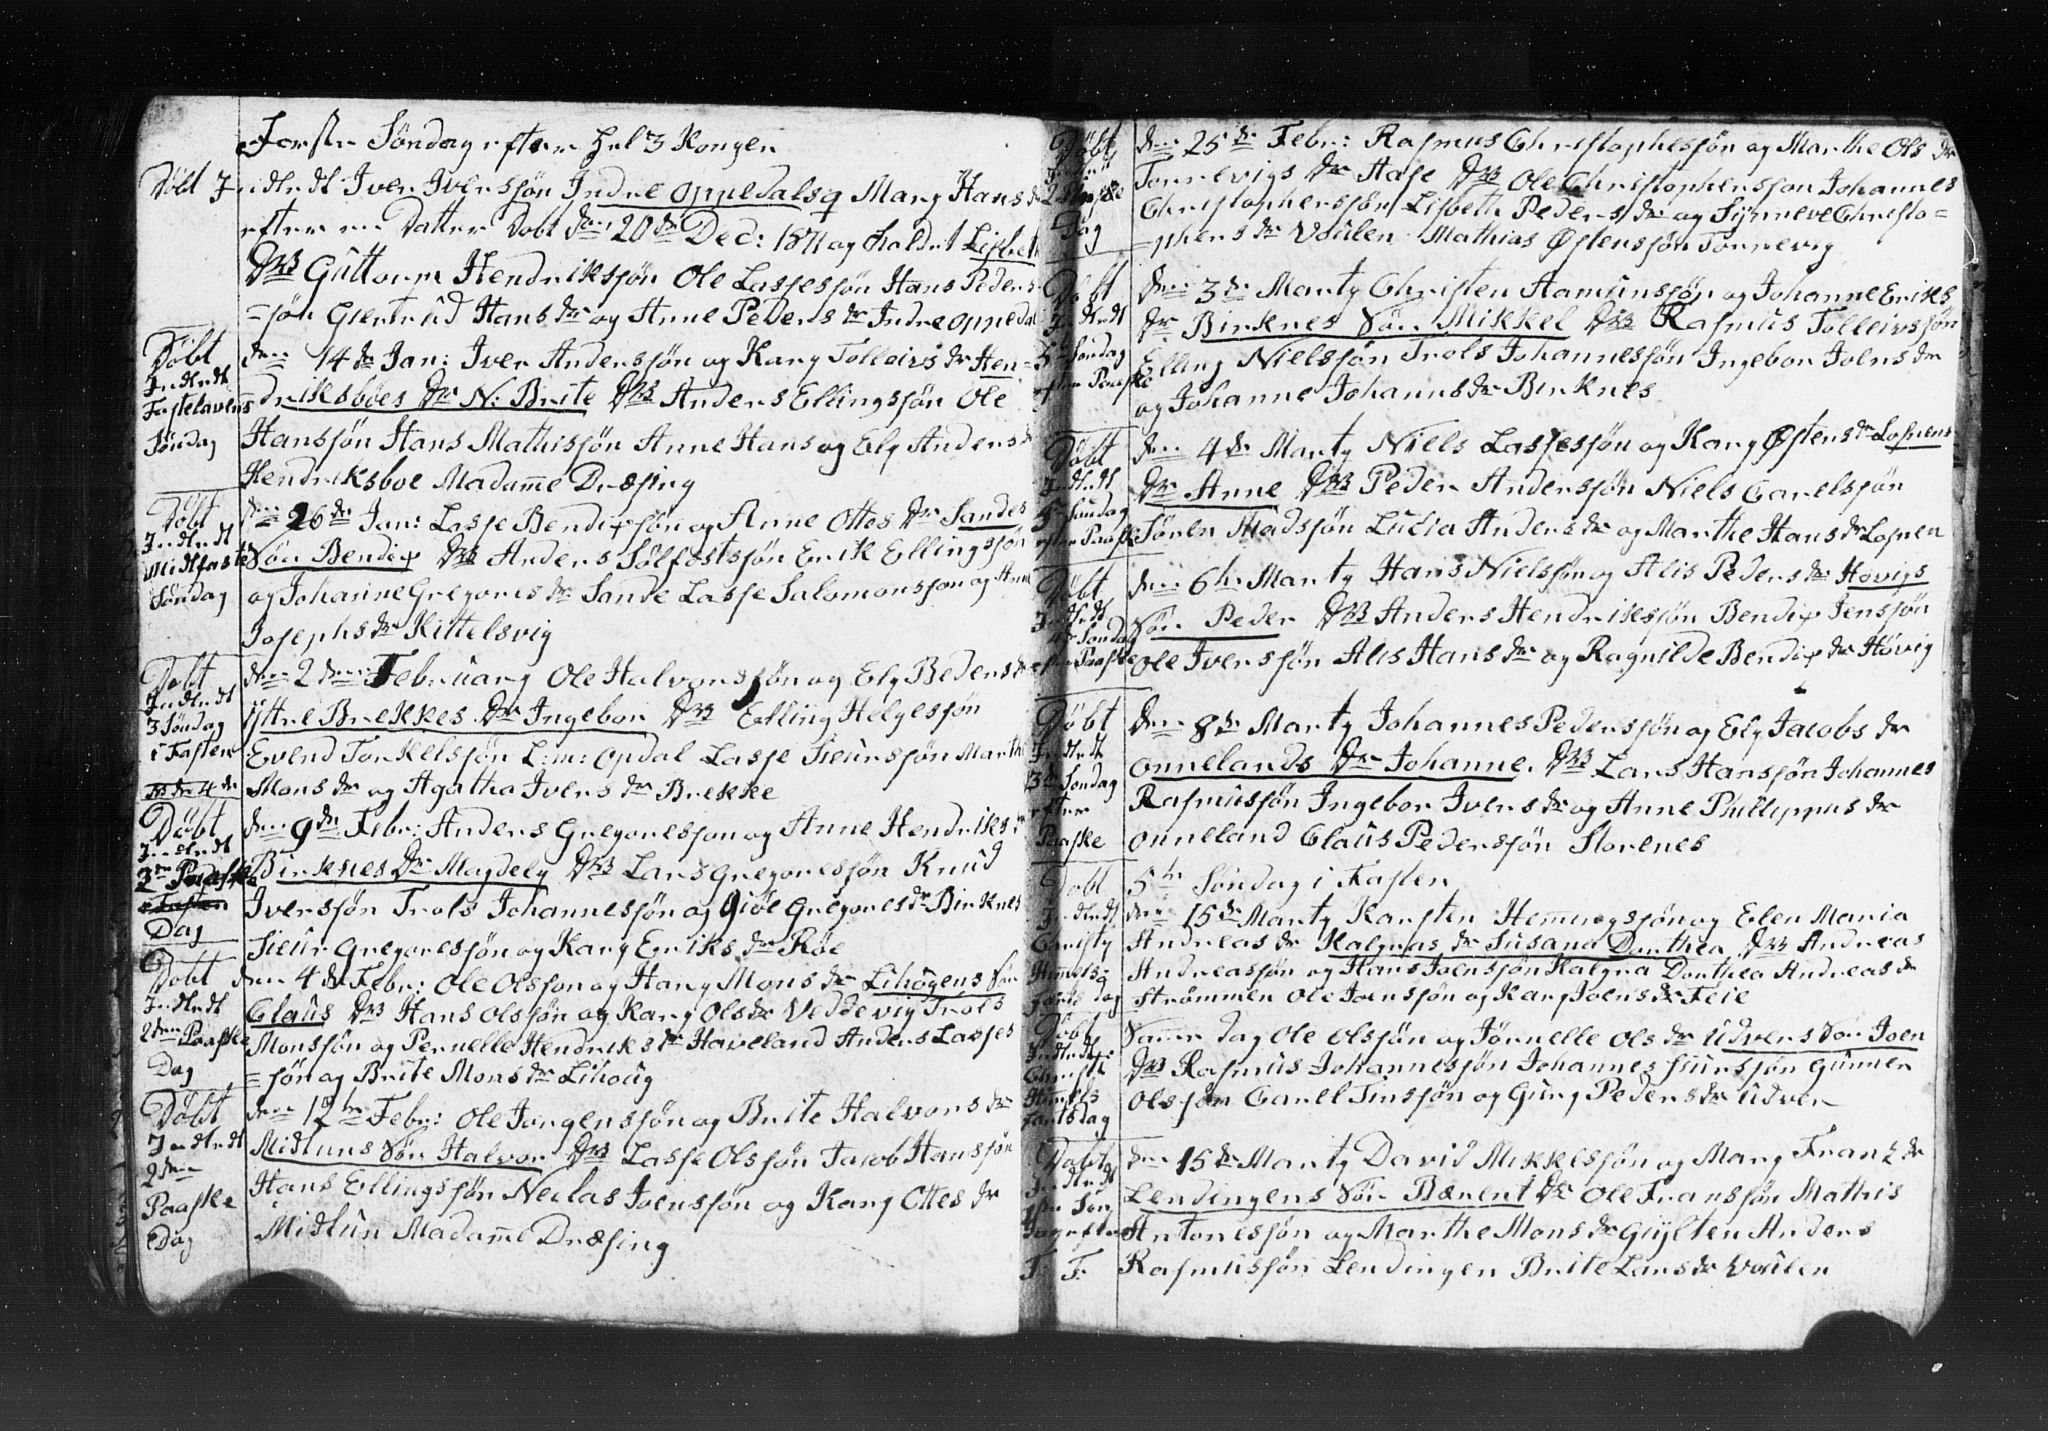 Første Søndag efter Hel 3 Konger
Døbt Indledt Iver Iversøn Indre Oppedals og Mary Hans dr
efter en Datter Døbt den 20de Dec: 18 og kaldet Lisbeth
Guttorm Hendriksøn Ole Lassesøn Hans Peders
=søn Giertrud Hans dr og Anne Peders dr Indre Oppedal
Døbt
Indledt
Fastelavens
Søndag
den 14de Jan: Iver Andersøn og Kary Tolleivs dr Hen=
=driksbøes dr N: Brite Anders Ellingsøn Ole
Hansøn Hans Mathisøn Anne Hans og Ely Anders dr
Hendriksboe Madame Dræsing
Døbt
Indledt
Midfaste
Søndag
den 26de Jan: Lasse Bendixsøn og Anne Ottes dr Sandes
Søn Bendix Anders Sølfestsøn Erik Ellingsøn
og Johanne Gregores dr Sande Lasse Salomonsøn og Anne
Josephs dr Kittelsvig
Døbt
Indledt
3 Søndag
i Fasten
den 2den Februarÿ Ole Halvorsøn og Ely Peders dr
Brekkes dr Ingebor Elling Helgesøn
Evend Torkelsøn L:m: Opdal Lasse Siursøn Marthe
Mons dr og Agatha Ivers dr Brekke
Døbt
Indledt
3den Paaske
i Fasten
Dag
den 9de Febr: Anders Gregoresøn og Anne Hendriks dr
Birknes dr Magdely Lars Gregoresøn Knud
Iversøn Trols Johannesøn og Giøe Gregores dr Birknes
Sieur Gregoresøn og Kary Eriks dr Røe
Døbt
Indledt
2den Paaske
Dag
den 4de Febr: Ole Olsøn og Hary Mons dr Lihougens Søn
Claus Hans Olsøn og Kary Ols dr Veddevig Trols
Monsøn og Pernelle Hendriks dr Haveland Anders Lasses
=søn og Brite Mons dr Lihoug
Døbt
Indledt
2den
Paaske
Dag
den 12te Febr: Ole Jørgensøn og Brite Halvors dr
Midtuns Søn Halvor Lasse Olsøn Jacob Hansøn
Hans Ellingsøn Neclas Joensøn og Kary Ottes dr
Midtun Madame Dræsing
Døbt
2 Paaske
Dag
den 25de Febr: Rasmus Christophersøn og Marthe Ols dr
Tonnevigs dr Hase Ole Christophersøn Johannes
Christophersøn Lisbeth Peders dr og Synneve Christo=
=phers dr Voulen Mathias Østensøn Tonnevig
Døbt
Indledt
Søndag
efter Paaske
den 3de Marty Christen Hamunsøn og Johanne Eriks
dr Birknes Søn Mikkel Rasmus Tolleivsøn
Elling Nielsøn Trols Johannesøn Ingebor Joens dr
og Johanne Johannes dr Birknes
Døbt
Indledt
5 Søndag
efter Paaske
den 4de Marty Niels Lassesøn og Kary Østens dr Losnens
dr Anne Peder Andersøn Niels Carelsøn
Søren Madsøn Lucia Anders dr og Marthe Hans dr Losnen
Døbt
Indledt
4de Søndag
efter Paaske
den 6te Marty Hans Nielsøn og Alis Peders dr Høvigs
Søn Peder Anders Hendriksøn Bendix Jensøn
Ole Iversøn Alis Hans dr og Ragnilde Bendix dr Høvig
Døbt
Indledt
3de Søndag
efter
Paaske
den 8de Marty Johannes Pedersøn og Ely Jacobs dr
Onnelands dr Johanne Lars Hansøn Johannes
Rasmusøn Ingebor Ivers dr og Anne Philippus dr
Onneland Claus Pedersøn Storenes
5te Søndag i Fasten
Døbt
Indledt
Christy
Himmels=
farts dag
den 15de Marty Karsten Hemmingsøn og Elen Maria
Andreas dr Kalgras dr Susana Dorthea Andreas
Andreasøn og Hans Joensøn Kalgra Dorthea Andreas dr
Strømmen Ole Joensøn og Kary Joens dr Feie
Døbt
Indledt
Christi
Himmels
fartsdag
Samme dag Ole Olsøn og Jønnelle Ols dr Udvers Søn Joen
Rasmus Johannesøn Johannes Siursøn Gunner
Olsøn Carel Simsøn og Gury Peders dr Udver
Døbt
Indledt
1ste Søn
dag efter
T. F.
den 15de Marty David Mikkelsøn og Mary Frantz dr
Lendingens Søn Bærent Ole Fransøn Mathis
Antonesøn og Marthe Mons dr Gylten Anders
Rasmusøn Lendingen Brite Lars dr Voulen